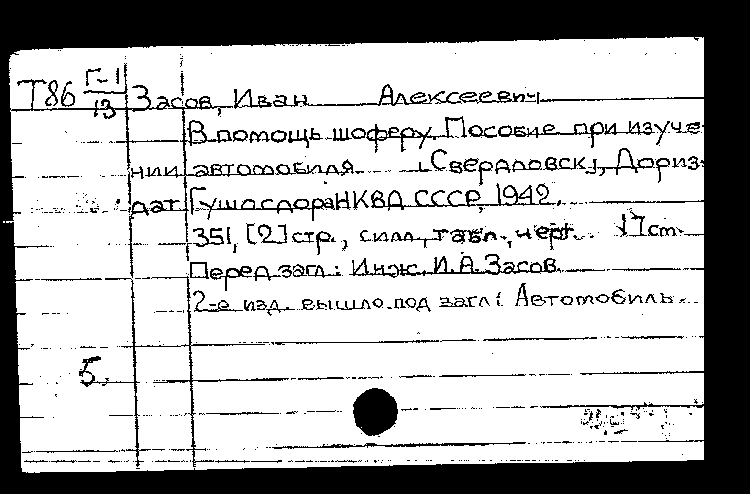 Т86 Г-1/13 Засов, Иван Алексеевич
В помощь шоферу. Пособие при изуче-
нии автомобиля. [Свердловск], Дориз-
дат Гушосдора НКВД СССР, 1942.
351, [2] стр., с илл., табл., черт. 17 см.
Перед загл.: Инж. И.А. Засов
2-е изд. вышло под загл: Автомобиль.
5.